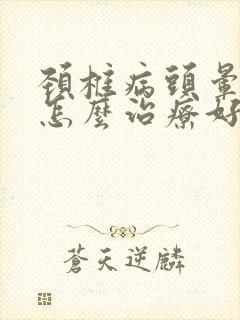 頚椎病頭暈
怎麼治療好
蒼天逆麟